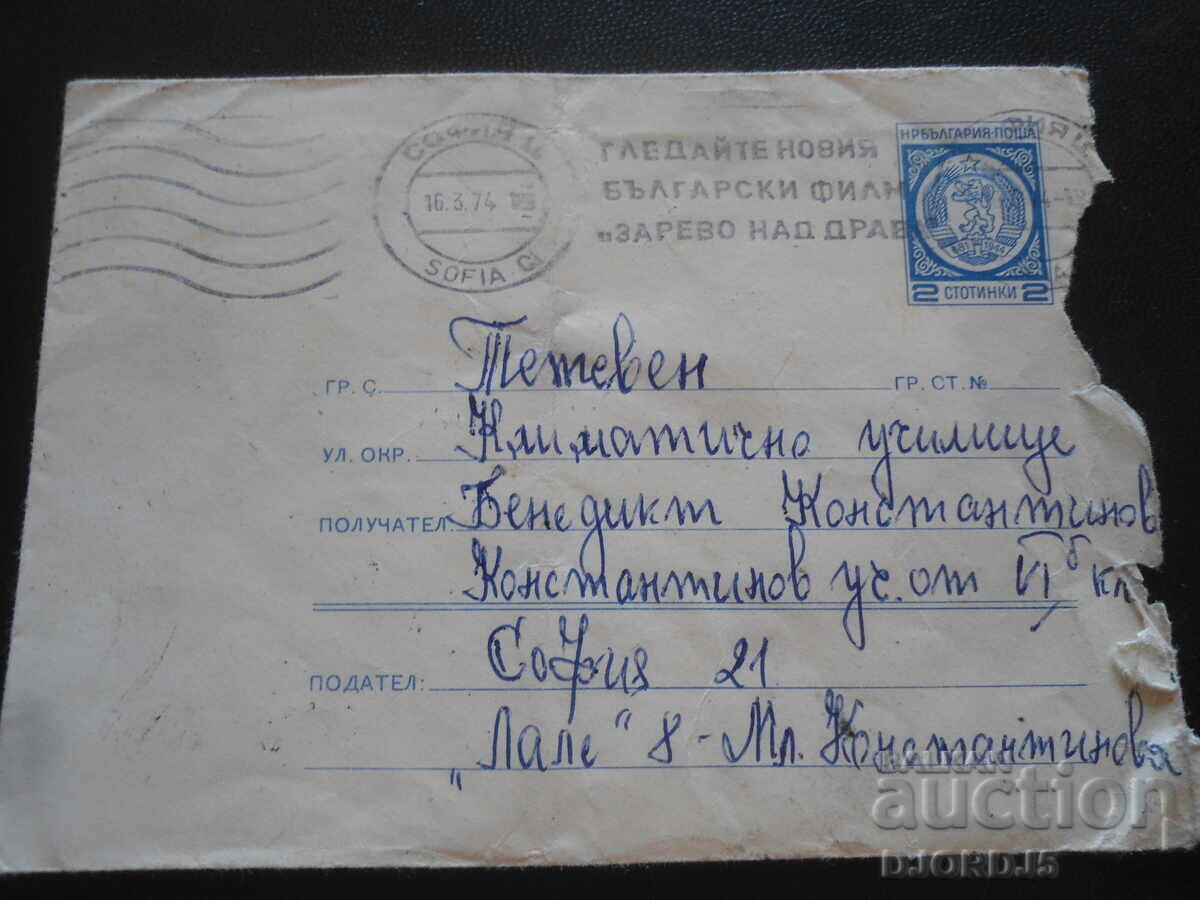 СОФИЯ Ц.
16.3.74
SOFIA C
ГЛЕДАЙТЕ НОВИЯ
БЪЛГАРСКИ ФИЛМ
„ЗАРЕВО НАД ДРАВ
НРБЪЛГАРИЯ·ПОЩА
681 1944
2 СТОТИНКИ 2
ГР. С. Тетевен ГР. СТ. №
УЛ. ОКР. Климатично училище
ПОЛУЧАТЕЛ: Бенедикт Константинов
Константинов уч. от VI б кл
София 21
ПОДАТЕЛ:
„Лале" 8 - Мл. Константинова
BALKAN
auction
DJORDJ5